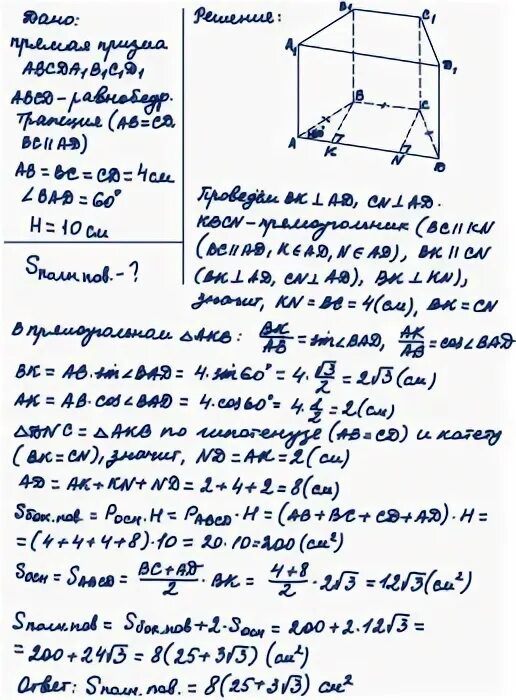 Дано:
прямая призма
ABCDA₁B₁C₁D₁
ABCD - равнобедр.
трапеция (AB=CD,
BC∥AD)
AB = BC = CD = 4см
∠BAD = 60°
H = 10см
Sполн.пов. - ?
Решение:
B₁ C₁
A₁ D₁
B C
A 60° K N D
Проведём BK⊥AD, CN⊥AD.
KBCN - прямоугольник (BC∥KN
(BC∥AD, K∈AD, N∈AD), BK∥CN
(BK⊥AD, CN⊥AD), BK⊥KN),
значит, KN = BC = 4(см), BK = CN
В прямоугольном △AKB: BK/AB = sin∠BAD, AK/AB = cos∠BAD
BK = AB·sin∠BAD = 4·sin60° = 4·√3/2 = 2√3(см)
AK = AB·cos∠BAD = 4·cos60° = 4·1/2 = 2(см)
△DNC = △AKB по гипотенузе (AB=CD) и катету
(BK=CN), значит, ND = AK = 2(см)
AD = AK + KN + ND = 2 + 4 + 2 = 8(см)
Sбок.пов = Pосн·H = PABCD·H = (AB + BC + CD + AD)·H =
= (4 + 4 + 4 + 8)·10 = 20·10 = 200(см²)
Sосн = SABCD = (BC + AD)/2 · BK = (4 + 8)/2 · 2√3 = 12√3(см²)
Sполн.пов = Sбок.пов + 2·Sосн = 200 + 2·12√3 =
= 200 + 24√3 = 8(25 + 3√3) (см²)
Ответ: Sполн.пов. = 8(25 + 3√3) см²